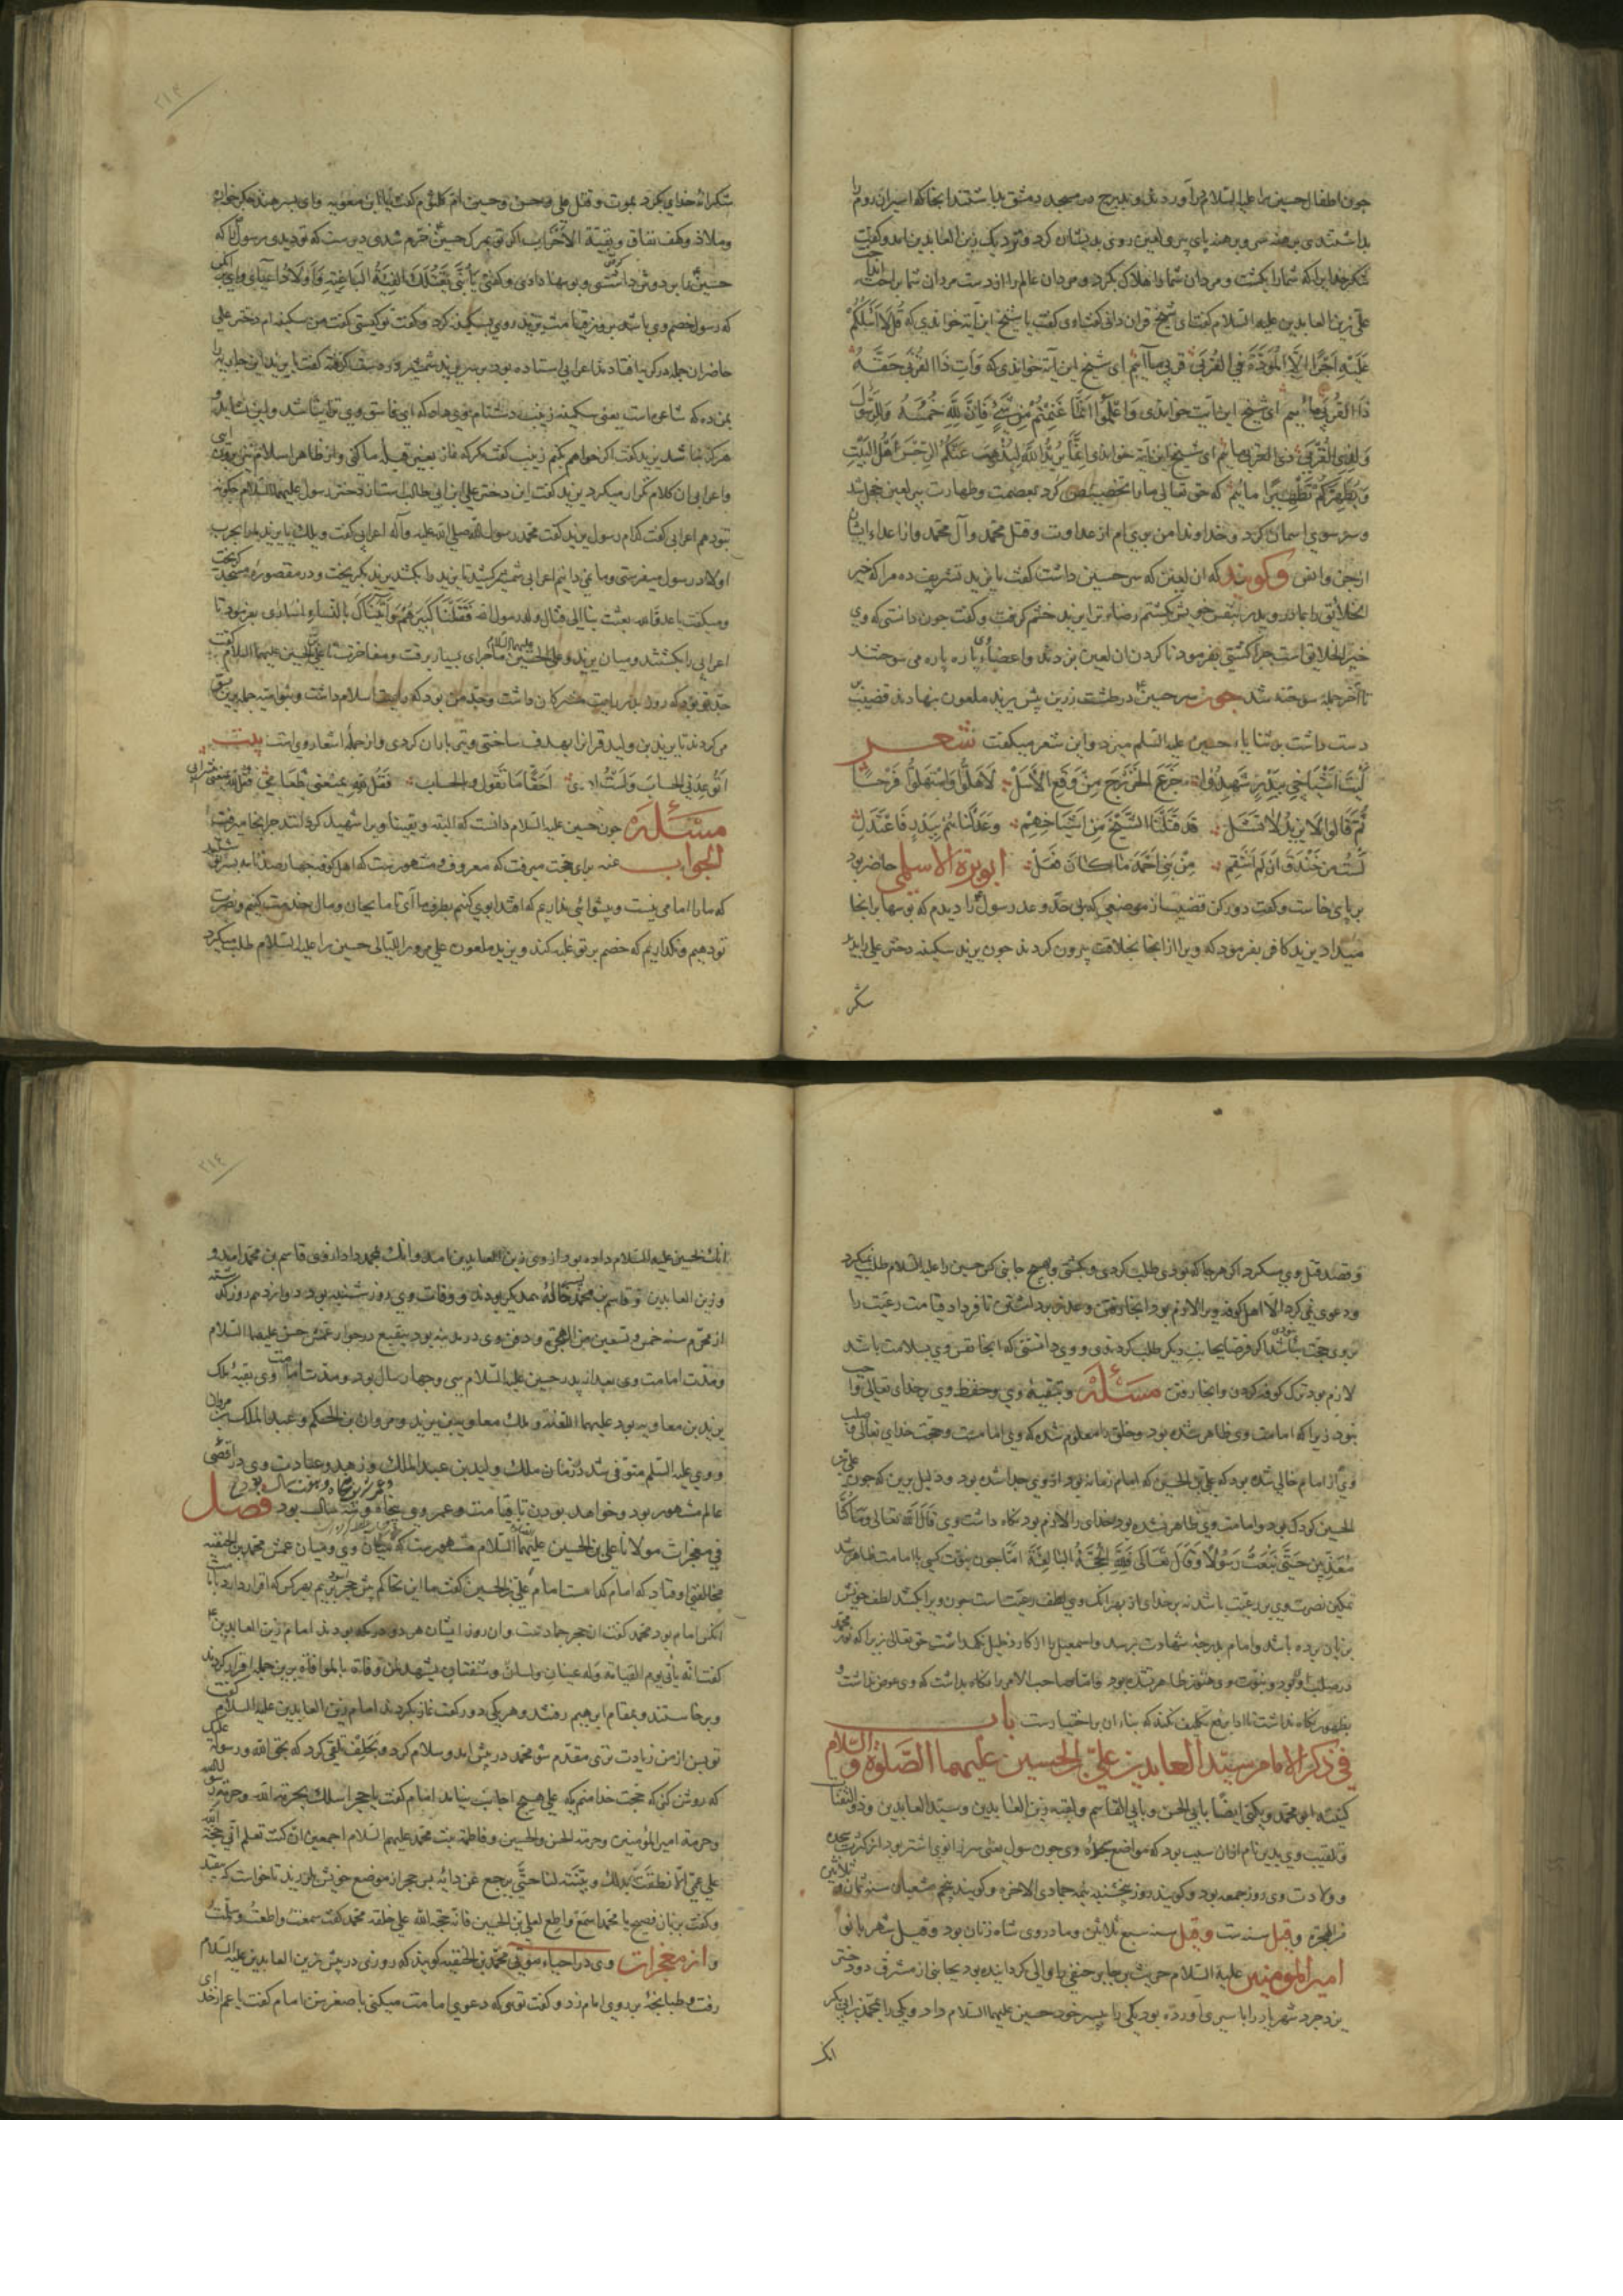 چون اطفال حسین را علیه السلام درآوردند و بدرج در مسجد دمشق بداشتند آنجا که اسیران روم را
بداشتندی برهنه سر و برهنه پای پیر لعین روی بدیشان کرد و نزدیک زین العابدین آمد و گفت
شکر خدایرا که شما را بکشت و مردان شما را هلاک بکرد و مردان عالم را از دست مردان شما براحت
علی زین العابدین علیه السلام گفت ای شیخ قران دانی گفت اری گفت یا شیخ این آیه خواندی که قُل لا اَسئَلُکُم
عَلَیهِ اَجرًا اِلّا المَوَدَّةَ فِی القُربی قربی ماییم ای شیخ این آیه خواندی که وَآتِ ذَا القُربی حَقَّهُ
ذا القربی ماییم ای شیخ این آیت خواندی وَاعلَمُوا اَنَّما غَنِمتُم مِن شَیءٍ فَاَنَّ لِلّهِ خُمُسَهُ وَلِلرَّسُولِ
وَلِذِی القُربی ذی القربی ماییم ای شیخ این آیه خواندی اِنَّما یُریدُ اللهُ لِیُذهِبَ عَنکُمُ الرِّجسَ اَهلَ البَیتِ
وَیُطَهِّرَکُم تَطهیرًا ماییم که حق تعالی ما را تخصیص کرد بعصمت و طهارت پیر لعین خجل شد
و سر سوی اسمان کرد و خداوندا من بری ام از عداوت و قتل محمد و آل محمد و از اعداء ایشان
از جن و انس وگویند که ان لعین که سر حسین داشت گفت یا یزید تشریف ده مرا که خیر
الخلایق را بمادر و پدر بنفس خویش کشتم رضاء ترا یزید خشم گرفت و گفت چون دانستی که وی
خیر الخلایق است چرا کشتی بفرمود تا گردن ان لعین بزدند و اعضاء وی پاره پاره می سوختند
تا آخر جمله سوخته شد چون سر حسین در طشت زرین پیش یزید ملعون بنهادند قضیب بر
دست داشت بر ثنایاء حسین علیه السلم میزد و این شعر میگفت شعر
لَیتَ اَشیاخی بِبَدرٍ شَهِدُوا جَزَعَ الخَزرَجِ مِن وَقعِ الاَسَل لَاَهَلُّوا وَاستَهَلُّوا فَرَحًا
ثُمَّ قالوا لا یَزیدُ لا تَشَل قَد قَتَلنا الشَّیخَ مِن اَشیاخِهِم وَعَدَلناهُم بِبَدرٍ فَاعتَدَل
لَستُ مِن خَندَفَ اِن لَم اَنتَقِم مِن بَنی اَحمَدَ ما کانَ فَعَل ابوبرزة الاسلمی حاضر بود
بر پای خاست و گفت دور کن قضیب از موضعی که من جد وی رسول را دیدم که بوسها بر انجا
میداد یزید کافر بفرمود که ویرا از انجا بخلافت بیرون کردند چون یزید سکینه دختر علی را دید
شکر
۲۱۳
شکرانه خدای بکرد بموت و قتل علی و حسن و حسین ام کلثوم گفت یا ابن معویه و ای پسر هند جگرخواره
که رسول خصم وی باشد بروز قیامت یزید روی بسکینه کرد و گفت تو کیستی گفت من سکینه ام دختر علی
بمن ده که شاعی است یعنی سکینه زینب دشنام وی داد که ای فاسق وی ترا نباشد و این نشاید و
هرگز نباشد یزید گفت اگر خواهم بکنم زینب گفت مگر که نماز بغیر قبله ما کنی و از ظاهر اسلام بیرون
و اعرابی ان کلام تکرار میکرد یزید گفت این دختر علی ابن ابی طالب است از دختر رسول علیهما السلام چگونه
بتو دهم اعرابی گفت کدام رسول یزید گفت محمد رسول الله صلی الله علیه وآله اعرابی گفت ویلک یا یزید
اولاد رسول میفرستی و ما نمی دانیم اعرابی شمشیر کشید تا یزید را بکشد یزید بگریخت و در مقصوره مسجد گریخت
اعرابی را بکشتند و میان یزید و علی الحسین علیهما السلام ماجرای بسیار برفت و مفاخرتها علی بن الحسین علیهما السلام گفت
جد تو بود که روز بدر رایت مشرکان داشت و جد من بود که رایت اسلام داشت
می کردند تا یزید بن ولید قران را بهدف ساختی و تیر باران کردی و از جمله اشعار وی است بیت
مسئله چون حسین علیه السلام دانست که البته و یقینا ویرا شهید کردانند چرا انجا میرفت
الجواب عنه برای حجت میرفت که معروف و مشهورست که اهل کوفه چهارصد نامه بنوشتند
که ما را امامی نیست و پیشوائی نداریم که اقتدا بوی کنیم بطرف ما آی تا ما بجان و مال خدمت کنیم و نصرت
تو دهیم و نگذاریم که خصم بر تو غلبه کند و یزید ملعون علی مرور اللیالی حسین را علیه السلام طلب میکرد
و قصد قتل وی میکرد اگر هرجا که بودی طلب کردی و بکشتی و هیچ جانبی کس حسین را علیه السلام طلب نمیکرد
و دعوی نمی کرد الا اهل کوفه ویرا لازم بود انجا رفتن و عذر برداشتن تا فردا قیامت رعیت را
بر وی حجت نباشد اگر فرضا بجانب دیگر طلب کردندی و وی دانستی که انجا نفس وی بسلامت باشد
لازم بود ترک کوفه کردن و انجا رفتن مسئله و تبقیه وی و حفظ وی بر خدای تعالی واجب
نبود زیرا که امامت وی ظاهر شده بود و خلق را معلوم شده که وی امامست و حجت خدای تعالی
وی از امام خالی شده بود که علی بن الحسین که امام زمانه بود از وی جدا شده بود و دلیل برین که چون علی بن
الحسین کودک بود و امامت وی ظاهر نشده بود خدای را لازم بود نگاه داشت وی قال الله تعالی وَما کُنّا
مُعَذِّبینَ حَتّی نَبعَثَ رَسُولًا وَقالَ تَعالی فَلِلّهِ الحُجَّةُ البالِغَةُ امّا چون نبوت کسی یا امامت ظاهر شد
تمکین نصرت وی بر رعیت باشد نه بر خدای از بهر انک وی لطف رعیت است چون ویرا بکشند لطف خویش
بزیان برده باشد و امام بدرجه شهادت برسد و اسمعیل را از کارد خلیل نگهداشت حق تعالی زیرا که نور محمد
در صلب او بود و نبوت وی هنوز ظاهر نشده بود
بظهور نگاه نداشت تا ادا برفع تکلیف نکند که بناء ان بر اختیارست باب
فی ذکر الامام سید العابدین علی بن الحسین علیهما الصلوة والسلام
کنیته ابو محمد ویکنی ایضا بابی الحسن وبابی القاسم ولقبه زین العابدین وسید العابدین وذو الثفنات
و تلقیب وی بدین نام ازان سبب بود که مواضع سجود وی چون سول یعنی سر زانوی اشتر بود از کثرت سجده
و ولادت وی روز جمعه بود و گویند روز پنجشنبه نیمه جمادی الاخره و گویند پنجم شعبان سنه ثمان و ثلاثین
من الهجرة وقیل سنه ست وقیل سنه سبع ثلاثین و مادر وی شاه زنان بود وقیل شهربانو
امیر المومنین علیه السلام حریث بن جابر حنفی را والی گردانیده بود بجانبی از مشرق دو دختر
یزدجرد شهریار را باسیری آورده بود یکی را بپسر خود حسین علیهما السلام داد و یکی را بمحمد بن ابی بکر
انک
۲۱٤
انک بحسین علیه السلام داده بود از وی زین العابدین آمد و انک بمحمد داد از وی قاسم بن محمد امد و
و زین العابدین و قاسم بن محمد پسر خاله همدیگر بودند و وفات وی روز شنبه بود دوازدهم روز گذشته
از محرم سنه خمس وتسعین من الهجرة و دفن وی در مدینه بود ببقیع در جوار عمش حسن علیهما السلام
و مدت امامت وی بعد از پدر حسین علیه السلام سی و چهار سال بود و مدت امامت وی بقیه ملک
یزید بن معاویه بود علیهما اللعنه و ملک معاویه بن یزید و مروان بن الحکم و عبد الملک بن مروان
و وی علیه السلم متوفی شد در زمان ملک ولید بن عبد الملک و زهد و عبادت وی در اقصی
عالم مشهور بود و خواهد بودن تا بقیامت و عمر وی پنجاه و سال بود فصل
و عمر عزیزش پنجاه و هفت سال بود
فی معجزات مولانا علی بن الحسین علیهما السلام مشهورست که میان وی و میان عمش محمد بن الحنفیه
مخالفتی اوفتاد که امام کدامست امام علی بن الحسین گفت بیا این تحاکم پیش حجر اسود بریم بهر کس که اقرار دهد بامامت
انکس امام بود محمد گفت ان حجر جمادیست و ان روز ایشان هر دو در مکه بودند امام زین العابدین
گفت انه یأتی یوم القیامة وله عینان ولسان وشفتان یشهد لمن وافاه بالموافاة برین جمله اقرار کردند
و برخاستند و بمقام ابرهیم رفتند و هر یکی دو رکعت نماز بکردند امام زین العابدین علیه السلام گفت
تو پس از من زیادت تری مقدم شو محمد در پیش امد و سلام کرد و بحلف تلقی کرد که بحق الله و رسوله علیک
که روشن کن که حجت خدا منم یکه علی هیچ اجابت نیامد امام گفت یا حجر اسألک بحرمة الله وحرمة رسول الله
وحرمة امیر المؤمنین وحرمة الحسن والحسین وفاطمة بنت محمد علیهم السلام اجمعین ان کنت تعلم انی حجة الله
علی عمی الا نطقت بذلک وبینته لنا حتی یرجع عن رائه پس حجر از موضع خویش بلرزید تا خواست که بیفتد
و گفت بزبان فصیح یا محمد اسمع واطع لعلی بن الحسین فانه حجة الله علی خلقه محمد گفت سمعت واطعت وسلمت
و از معجزات وی در احیاء موتی محمد بن الحنفیه گویند که روزی در پیش زین العابدین علیه السلام
رفت و طبانچه بر روی امام زد و گفت توی که دعوی امامت میکنی با صغر سن امام گفت یا عم از خدای